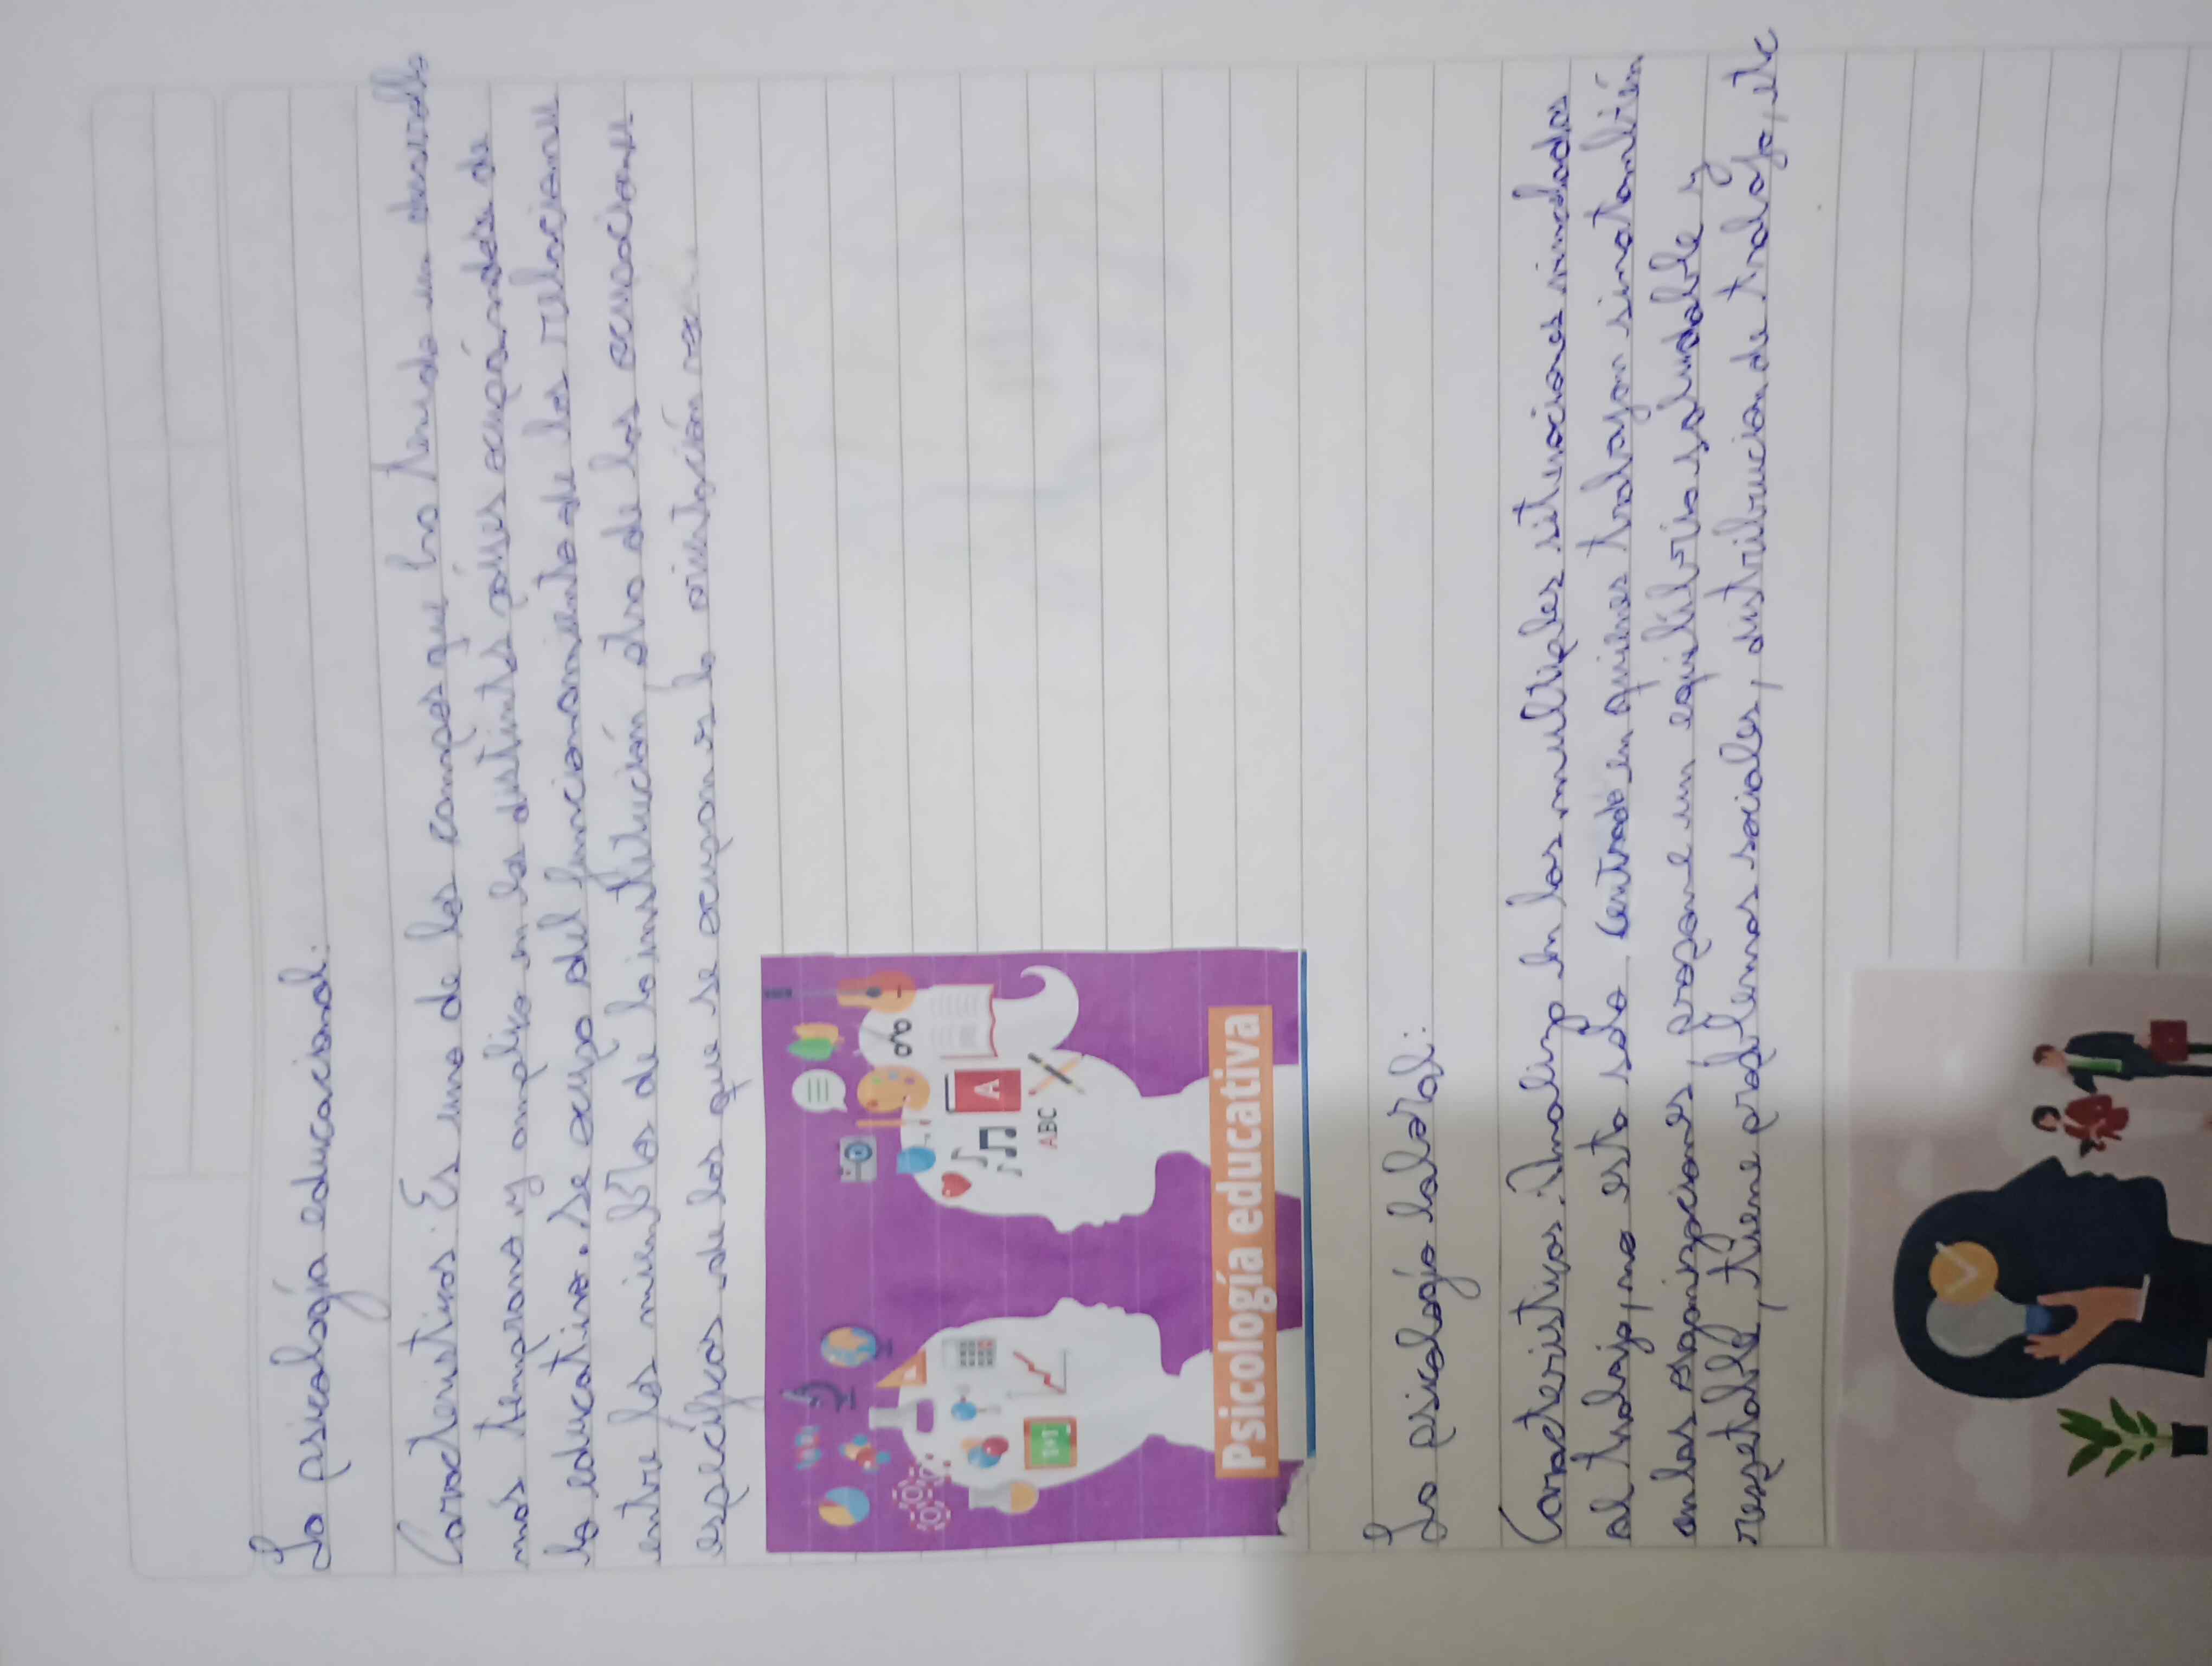 La psicología educacional:
Caracteristicas: Es uno de los campos que ha tenido un desarollo
más temprano y amplico en la distintas paises ocupándose de
lo educativo. Se ocupa del funcionamiento de las relaciones
entre los miembros de la institución, otro de los ocupaciones
específicas de las que se ocupan es la orientación
A
ABC
1+1
Psicología educativa
La psicología laboral:
Caracteristicas: Analiza en las multiples situaciones vinculadas
al trabajo, no esta solo centrado en quienes trabajan sino también
en las organizaciones, propone un equilibrio saludable y
respetable, tiene problemas sociales, distribucion de trabajo, etc